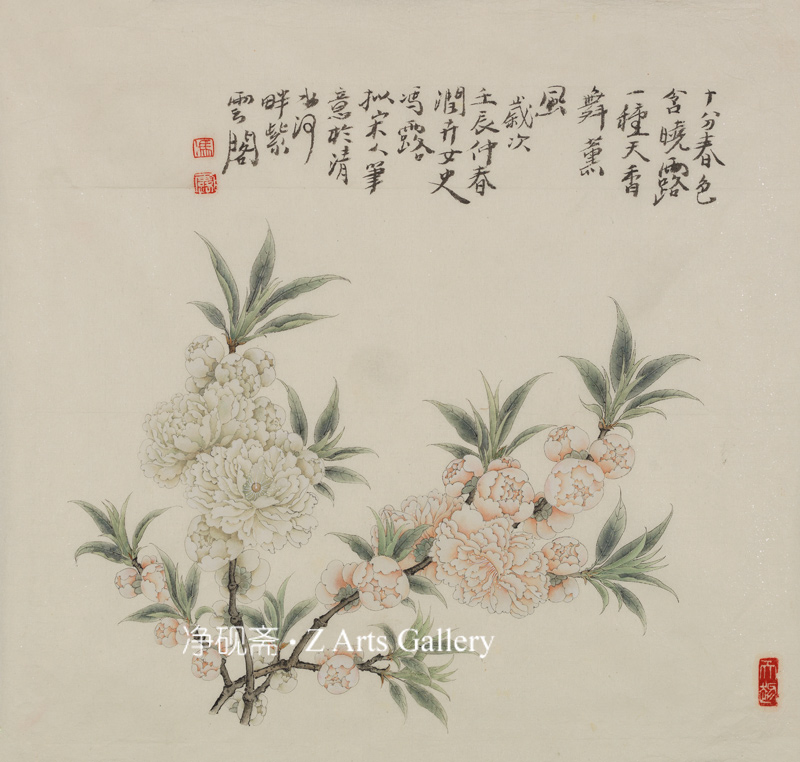 十分春色
含曉露
一種天香
舞薰
風
歲次
壬辰仲春
潤卉女史
馮露
拟宋人筆
意於清
水河
畔紫
雲閣
馮
露
净砚斋·Z Arts Gallery